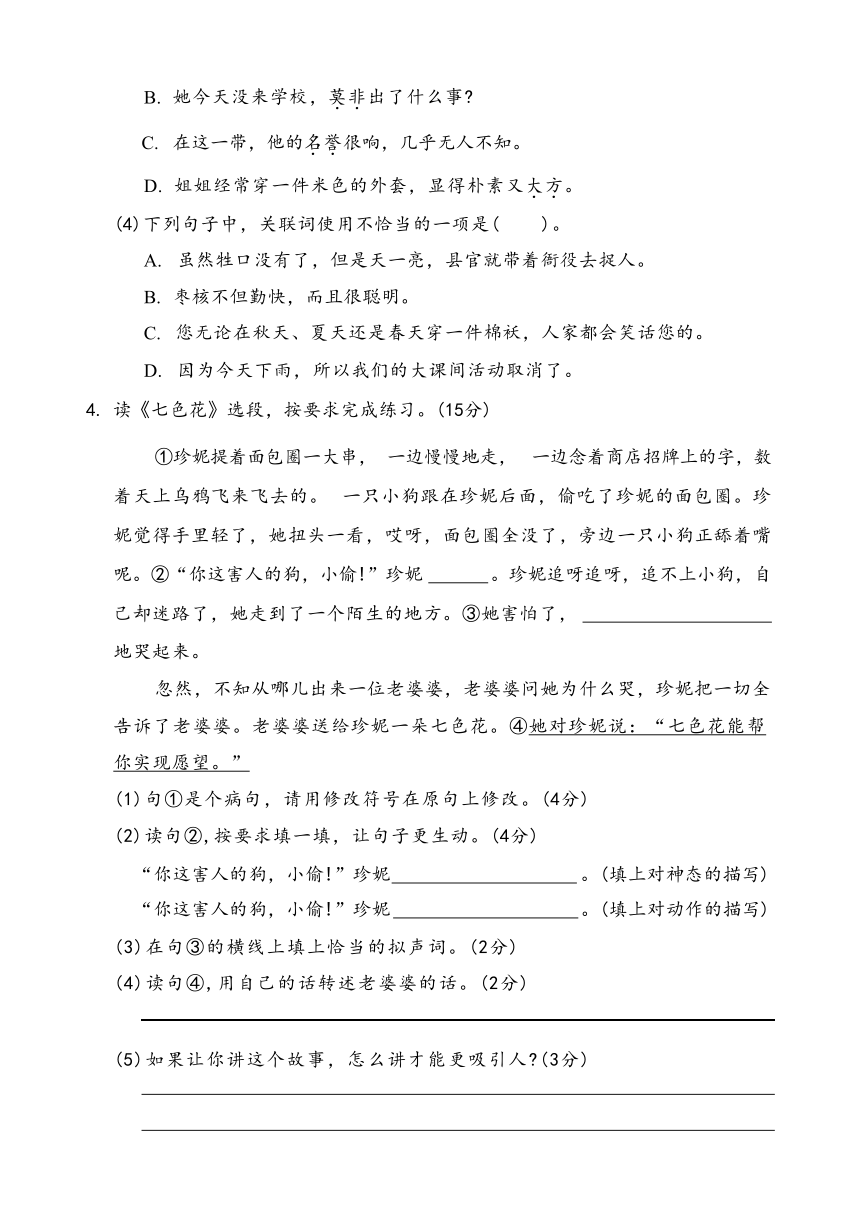 B. 她今天没来学校，莫非出了什么事?
C. 在这一带，他的名誉很响，几乎无人不知。
D. 姐姐经常穿一件米色的外套，显得朴素又大方。
(4)下列句子中，关联词使用不恰当的一项是(    )。
A. 虽然牲口没有了，但是天一亮，县官就带着衙役去捉人。
B. 枣核不但勤快，而且很聪明。
C. 您无论在秋天、夏天还是春天穿一件棉袄，人家都会笑话您的。
D. 因为今天下雨，所以我们的大课间活动取消了。
4. 读《七色花》选段，按要求完成练习。(15分)
①珍妮提着面包圈一大串， 一边慢慢地走， 一边念着商店招牌上的字，数
着天上乌鸦飞来飞去的。 一只小狗跟在珍妮后面，偷吃了珍妮的面包圈。珍
妮觉得手里轻了，她扭头一看，哎呀，面包圈全没了，旁边一只小狗正舔着嘴
呢。②“你这害人的狗，小偷!”珍妮______。珍妮追呀追呀，追不上小狗，自
己却迷路了，她走到了一个陌生的地方。③她害怕了，__________________
地哭起来。
忽然，不知从哪儿出来一位老婆婆，老婆婆问她为什么哭，珍妮把一切全
告诉了老婆婆。老婆婆送给珍妮一朵七色花。④她对珍妮说：“七色花能帮
你实现愿望。”
(1)句①是个病句，请用修改符号在原句上修改。(4分)
(2)读句②,按要求填一填，让句子更生动。(4分)
“你这害人的狗，小偷!”珍妮__________________。(填上对神态的描写)
“你这害人的狗，小偷!”珍妮__________________。(填上对动作的描写)
(3)在句③的横线上填上恰当的拟声词。(2分)
(4)读句④,用自己的话转述老婆婆的话。(2分)
(5)如果让你讲这个故事，怎么讲才能更吸引人?(3分)